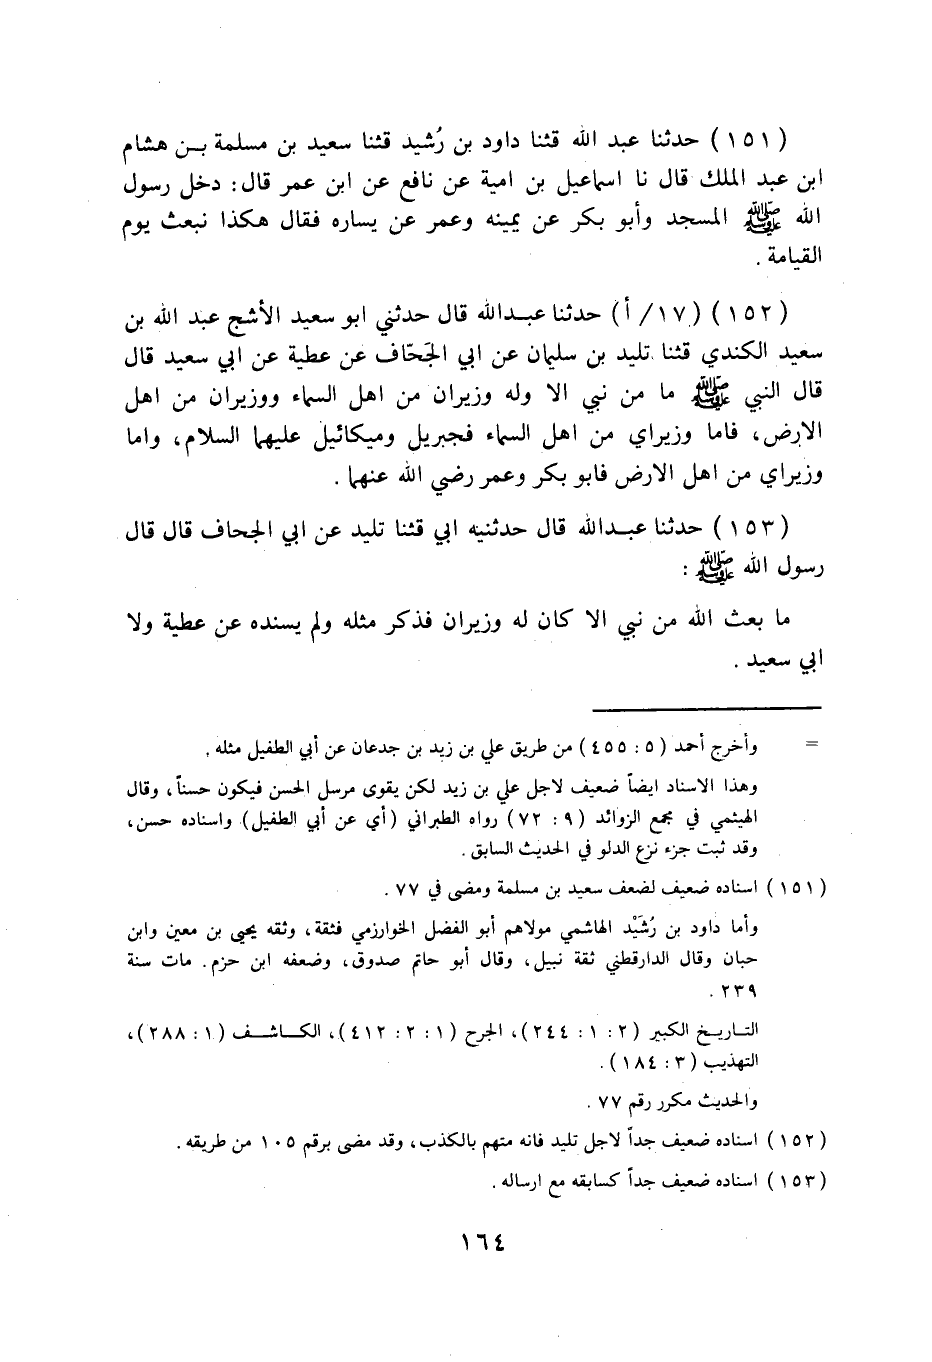 (١٥١) حدثنا عبد الله قثنا داود بن رُشيد قثنا سعيد بن مسلمة بـن هشام
ابن عبد الملك قال نا اسماعيل بن امية عن نافع عن ابن عمر قال: دخل رسول
الله ﷺ المسجد وأبو بكر عن يمينه وعمر عن يساره فقال هكذا نبعث يوم
القيامة .
(١٥٢) (١٧/ أ) حدثنا عبـدالله قال حدثني ابو سعيد الأشج عبد الله بن
سعيد الكندي قثنا تليد بن سليمان عن ابي الجَحّاف عن عطية عن ابي سعيد قال
قال النبي ﷺ ما من نبي الا وله وزيران من اهل السماء ووزيران من اهل
الارض، فاما وزيراي من اهل السماء فجبريل وميكائيل عليهما السلام، واما
وزيراي من اهل الارض فابو بكر وعمر رضي الله عنهما .
(١٥٣) حدثنا عبـدالله قال حدثنيه ابي قثنا تليد عن ابي الجحاف قال قال
رسول الله ﷺ :
ما بعث الله من نبي الا كان له وزيران فذكر مثله ولم يسنده عن عطية ولا
ابي سعيد .
= وأخرج أحمد (٥: ٤٥٥) من طريق علي بن زيد بن جدعان عن أبي الطفيل مثله .
وهذا الاسناد ايضاً ضعيف لاجل علي بن زيد لكن يقوى مرسل الحسن فيكون حسناً، وقال
الهيثمي في مجمع الزوائد (٩: ٧٢) رواه الطبراني (أي عن أبي الطفيل) واسناده حسن،
وقد ثبت جزء نزع الدلو في الحديث السابق .
(١٥١) اسناده ضعيف لضعف سعيد بن مسلمة ومضى في ٧٧ .
وأما داود بن رُشَيْد الهاشمي مولاهم أبو الفضل الخوارزمي فثقة، وثقه يحيى بن معين وابن
حبان وقال الدارقطني ثقة نبيل، وقال أبو حاتم صدوق، وضعفه ابن حزم. مات سنة
٢٣٩ .
التـاريـخ الكبير (٢: ١: ٢٤٤)، الجرح (١: ٢: ٤١٢)، الكـاشـف (١: ٢٨٨)،
التهذيب (٣: ١٨٤) .
والحديث مكرر رقم ٧٧ .
(١٥٢) اسناده ضعيف جداً لاجل تليد فانه متهم بالكذب، وقد مضى برقم ١٠٥ من طريقه .
(١٥٣) اسناده ضعيف جداً كسابقه مع ارساله .
١٦٤